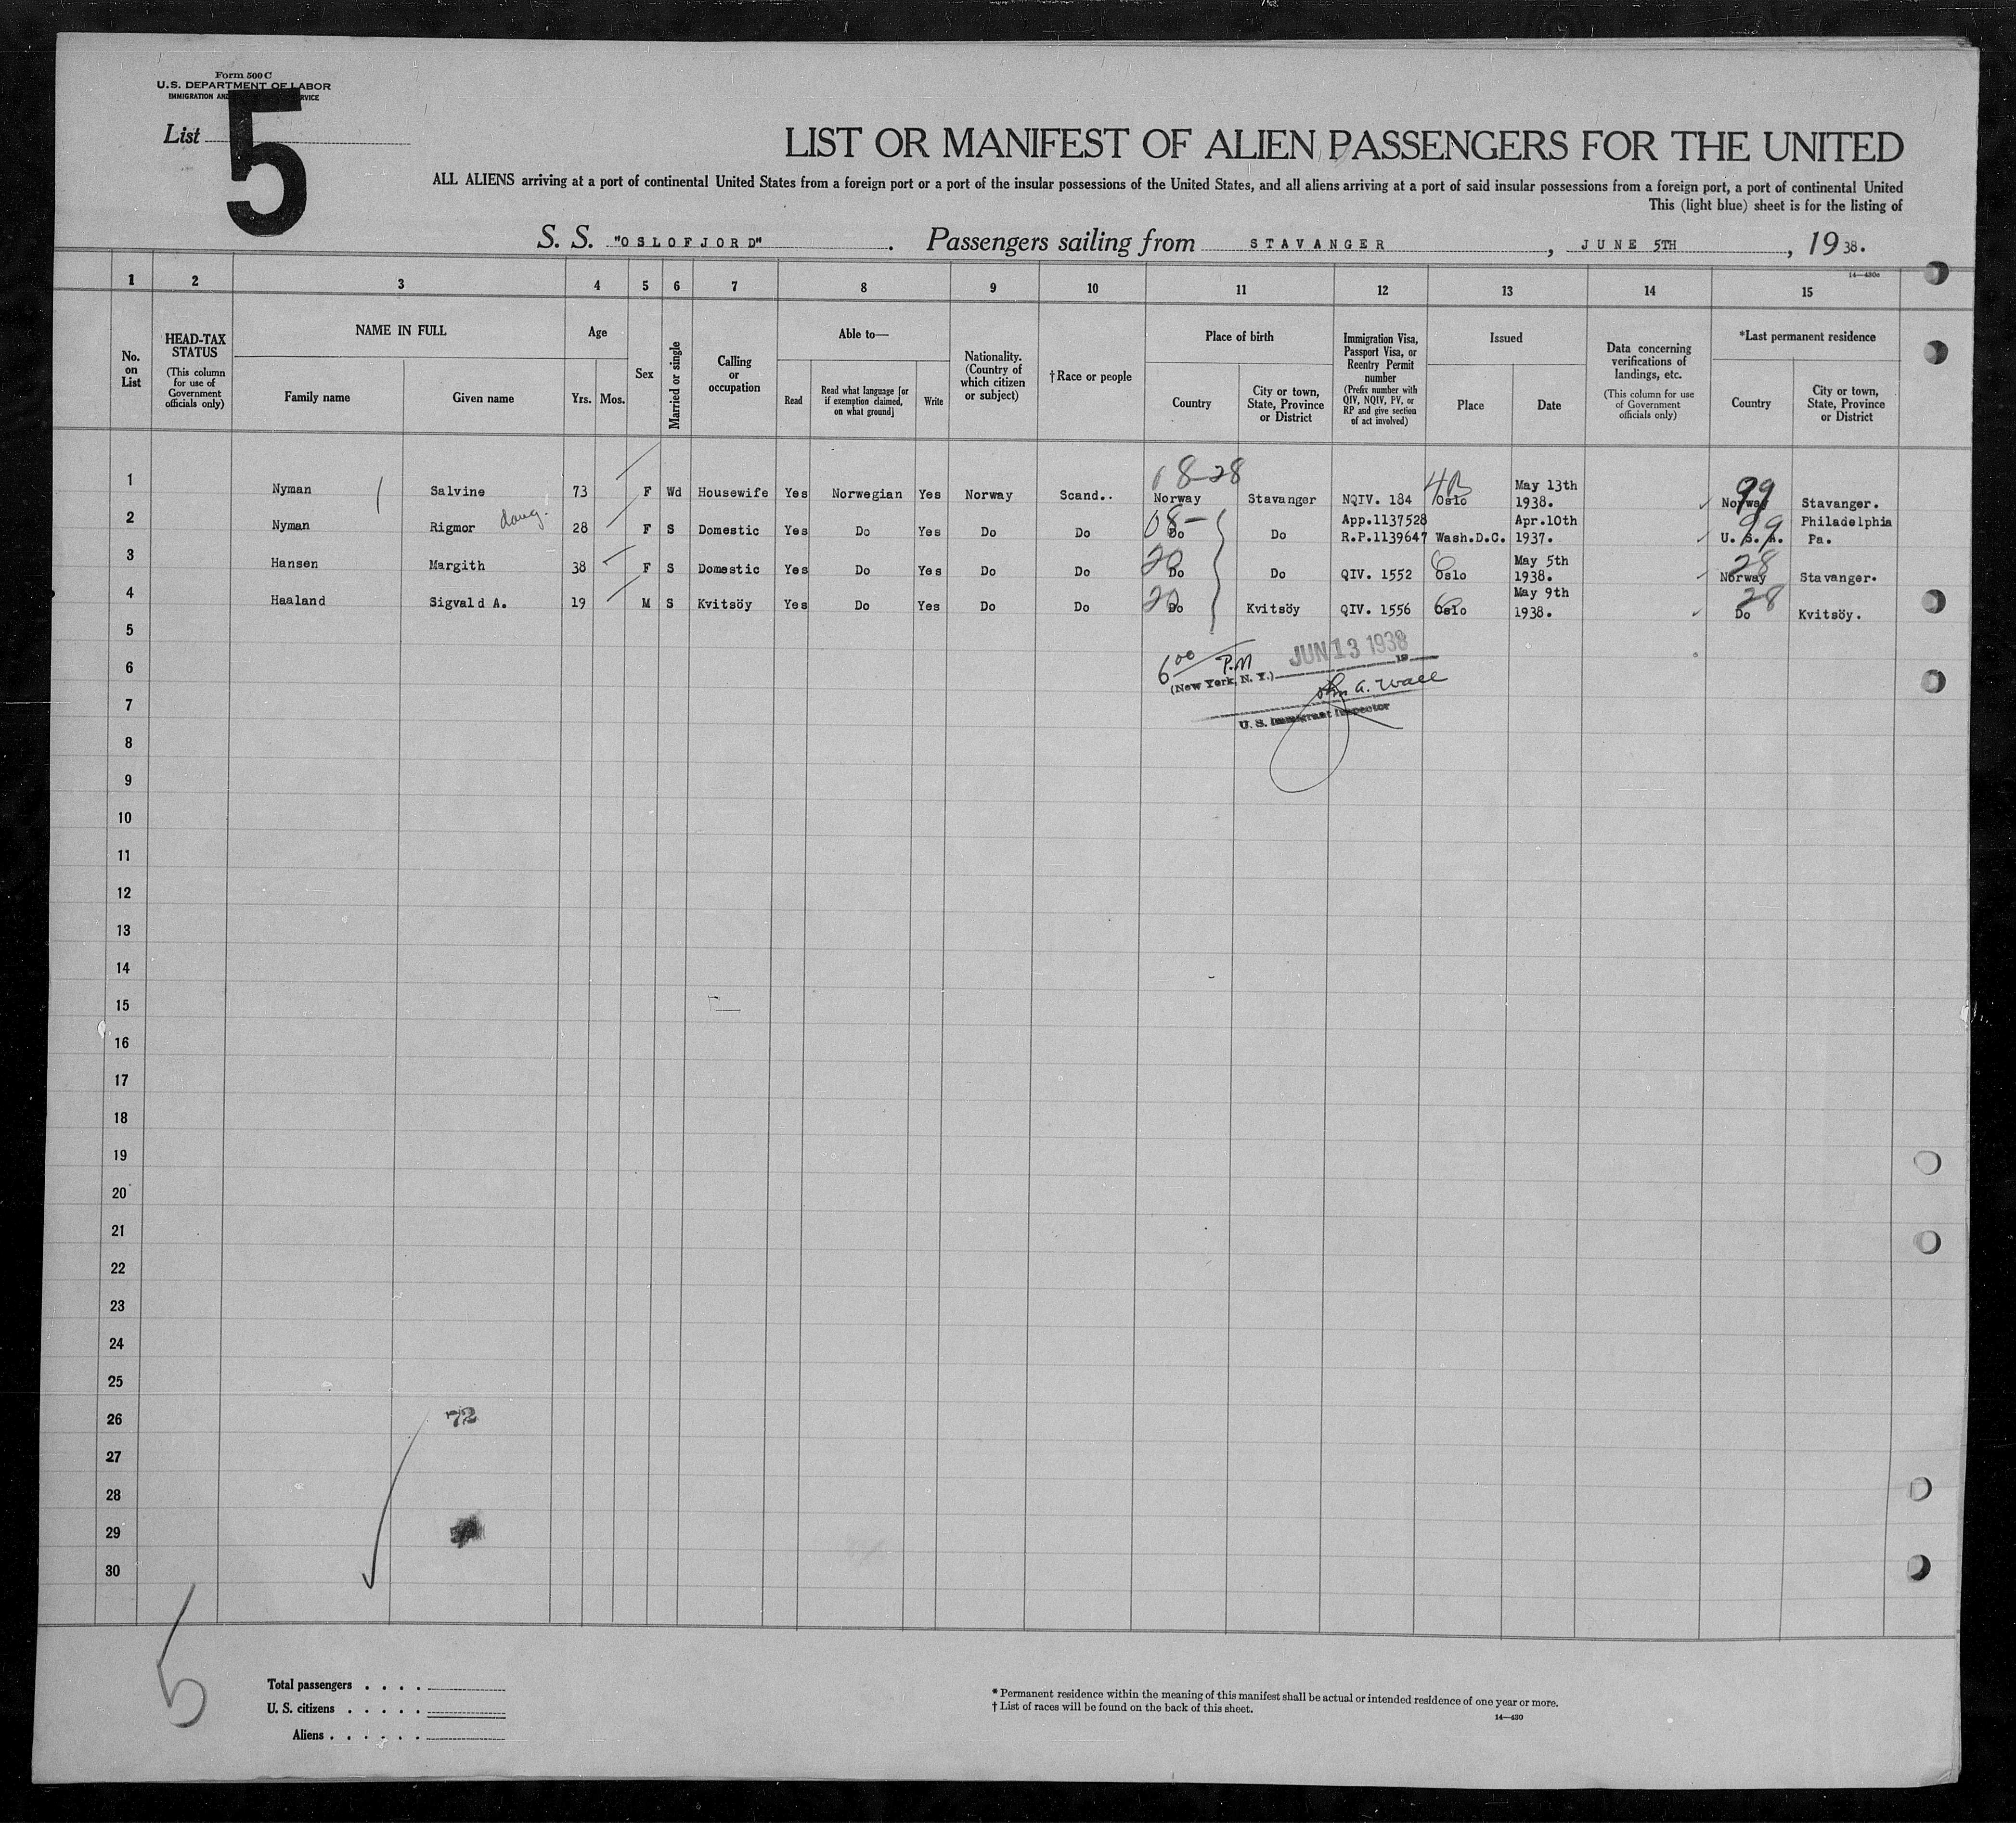 Form 500 C
U.S. DEPARTMENT OF LABOR
IMMIGRATION AND RVICE
List 5
LIST OR MANIFEST OF ALIEN PASSENGERS FOR THE UNITED
ALL ALIENS arriving at a port of continental United States from a foreign port or a port of the insular possessions of the United States, and all aliens arriving at a port of said insular possessions from a foreign port, a port of continental United
This (light blue) sheet is for the listing of
S. S. "OSLOFJORD". Passengers sailing from STAVANGER, JUNE 5TH, 19 38.
14—430a
1 2 3 4 5 6 7 8 9 10 11 12 13 14 15
No. on List
HEAD-TAX STATUS
(This column for use of Government officials only)
NAME IN FULL
Family name Given name
Age
Yrs. Mos.
Sex
Married or single
Calling or occupation
Able to—
Read
Read what language [or if exemption claimed, on what ground]
Write
Nationality. (Country of which citizen or subject)
†Race or people
Place of birth
Country
City or town, State, Province or District
Immigration Visa, Passport Visa, or Reentry Permit number
(Prefix number with QIV, NQIV, PV, or RP and give section of act involved)
Issued
Place Date
Data concerning verifications of landings, etc.
(This column for use of Government officials only)
*Last permanent residence
Country
City or town, State, Province or District
08-28 4B 99
1 Nyman Salvine 73 F Wd Housewife Yes Norwegian Yes Norway Scand.. Norway Stavanger NQIV. 184 Oslo May 13th 1938. Norway Stavanger.
08- 99
2 Nyman Rigmor daug. 28 F S Domestic Yes Do Yes Do Do Do Do App.1137528 R.P.1139647 Wash.D.C. Apr.10th 1937. U. S. A. Philadelphia Pa.
20 6 28
3 Hansen Margith 38 F S Domestic Yes Do Yes Do Do Do Do QIV. 1552 Oslo May 5th 1938. Norway Stavanger.
20 6 28
4 Haaland Sigvald A. 19 M S Kvitsöy Yes Do Yes Do Do Do Kvitsöy QIV. 1556 Oslo May 9th 1938. Do Kvitsöy.
5
6
6 00 P.M JUN 13 1938
(New York, N. Y.) 19
John A. Wall
U. S. Immigrant Inspector
7
8
9
10
11
12
13
14
15
16
17
18
19
20
21
22
23
24
25
26 72
27
28
29
30
5
Total passengers . . . .
U. S. citizens . . . . .
Aliens . . . . . .
* Permanent residence within the meaning of this manifest shall be actual or intended residence of one year or more.
† List of races will be found on the back of this sheet.
14—430